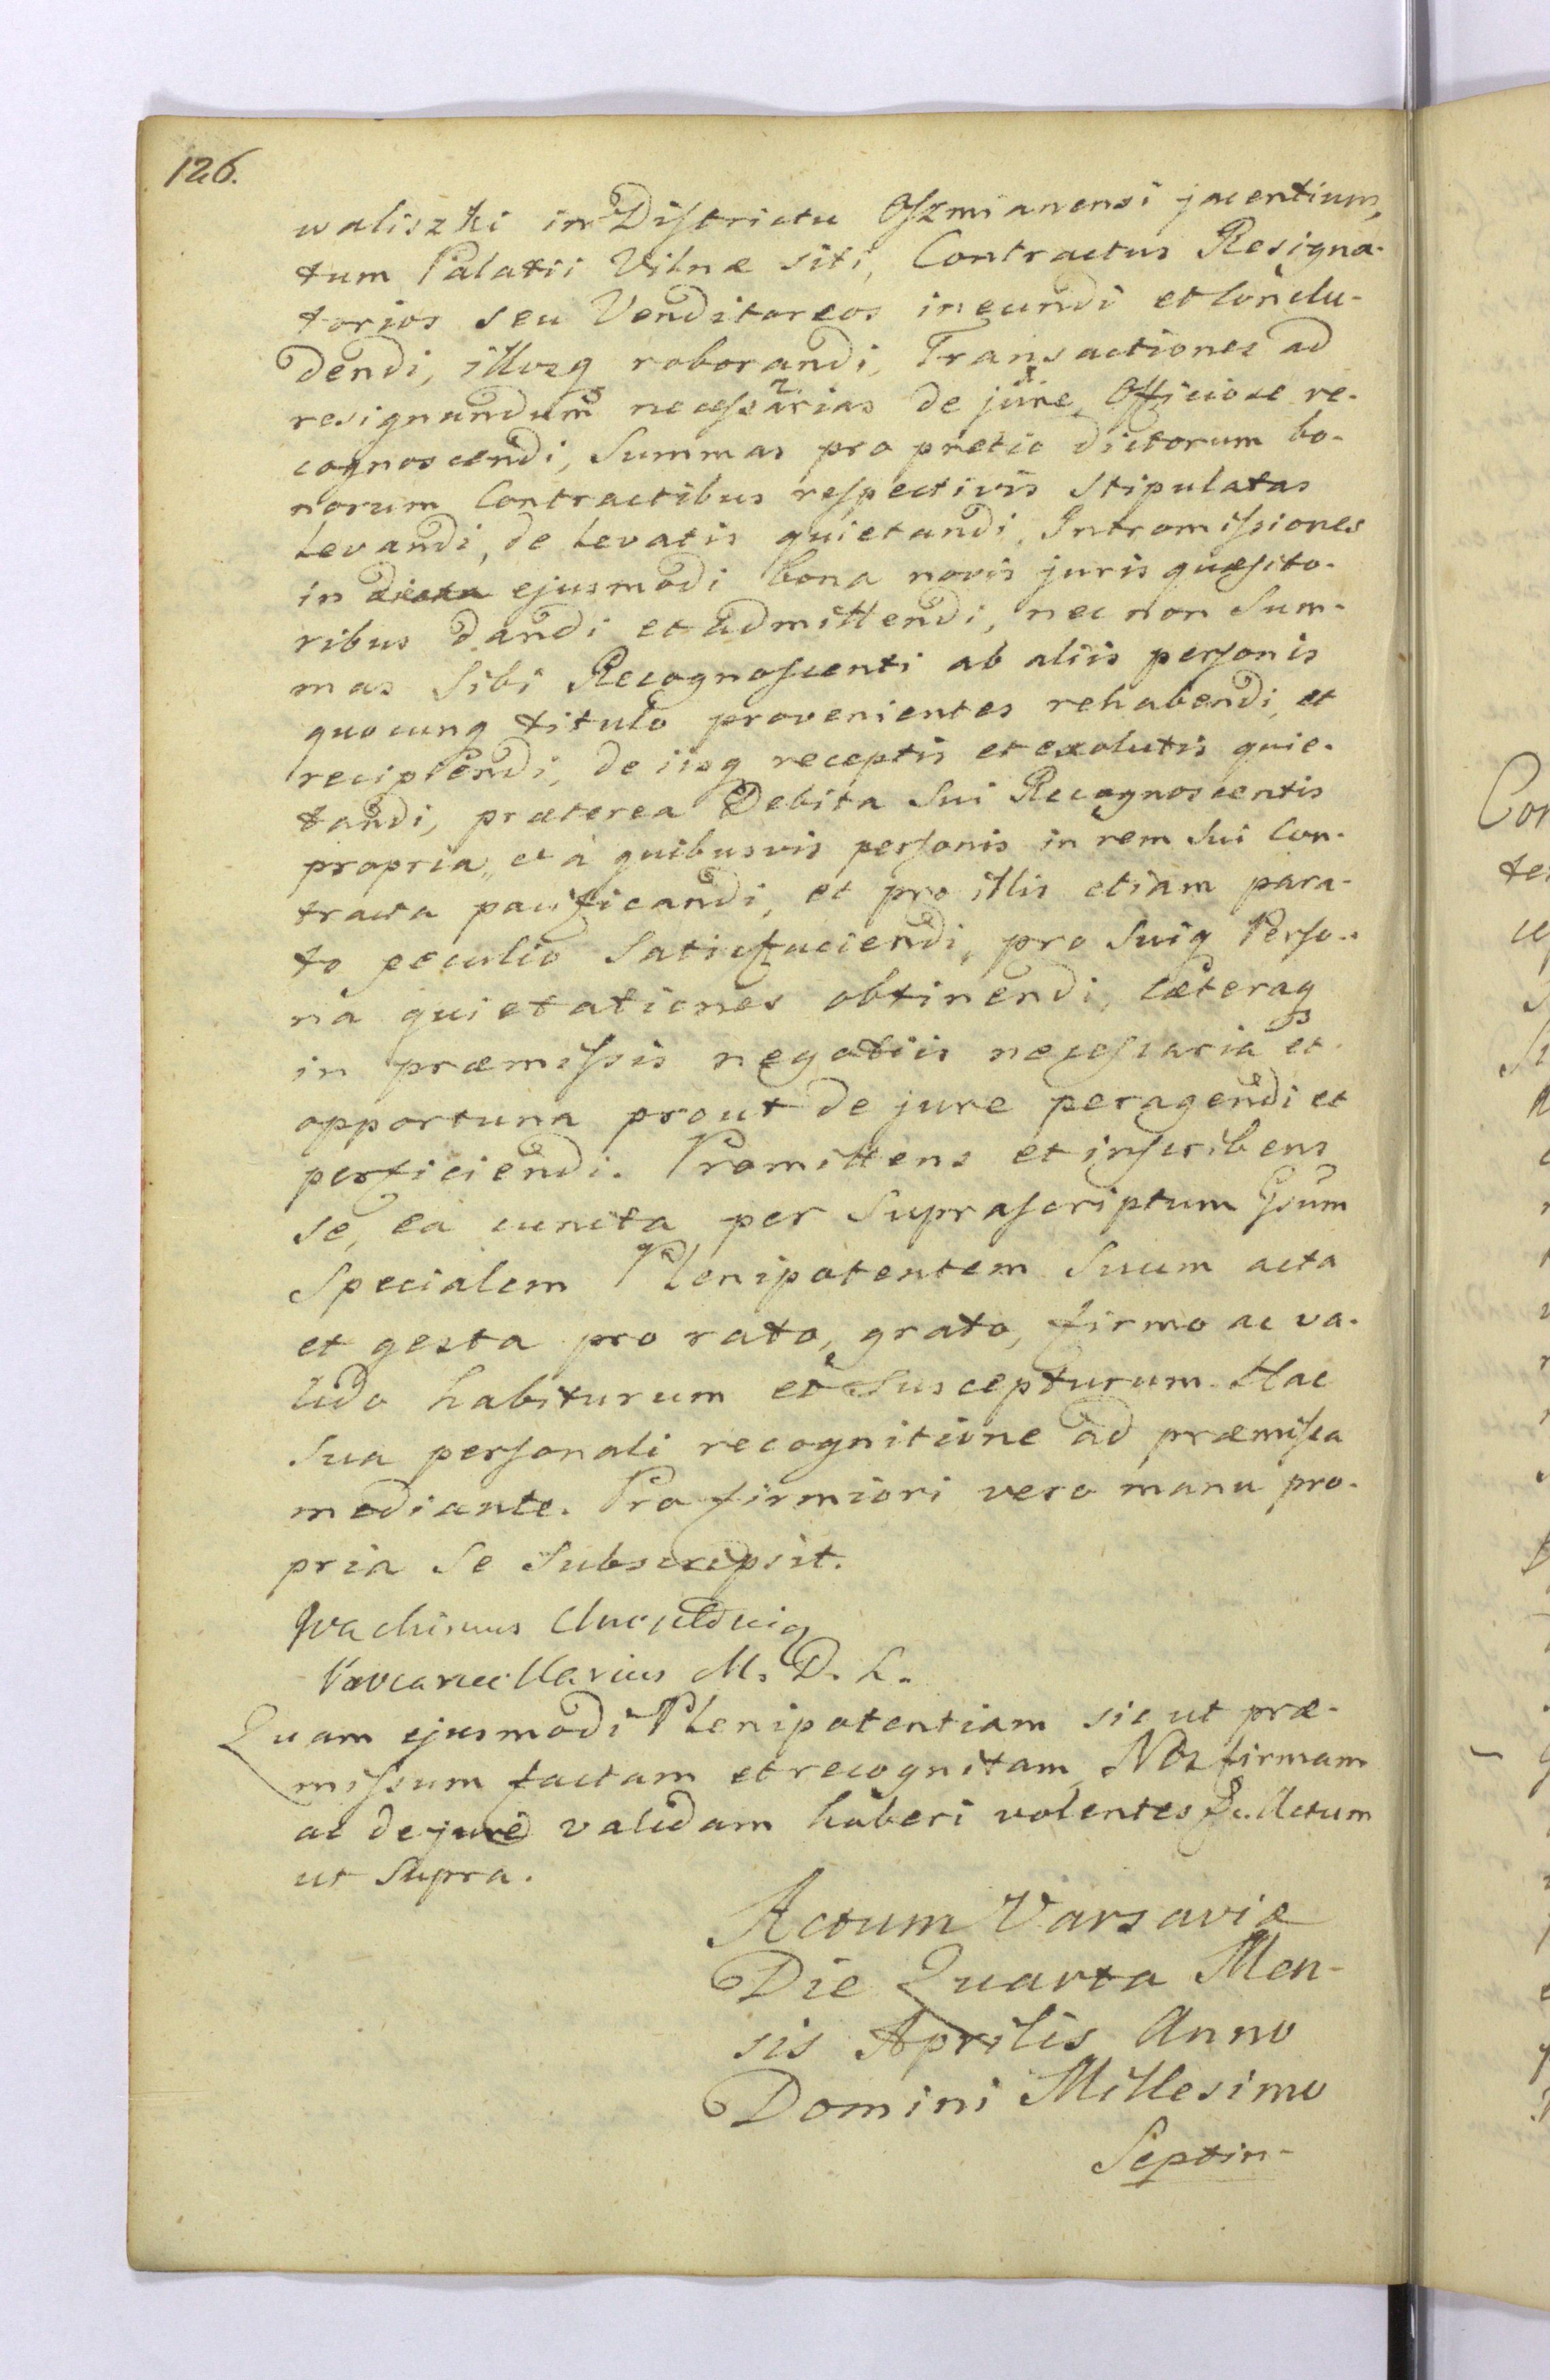 126.
waliszki in Districtu Oszmianensi jacentium,
tum Palatii Vilnæ siti, Contractus Resigna-
torios seu Venditoreos ineundi et conclu-
dendi, illosq roborandi, Transactiones ad
resignandum necessarias de jure, Officiose re-
cognoscendi, Summas pro pretio dictorum bo-
norum Contractibus respectivis Stipulatas
Levandi, de Levatis quietandi, Intromissiones
in dicta ejusmodi bona novis juris quæsito-
ribus dandi et admittendi, nec non Sum-
mas Sibi Recognoscenti ab aliis personis
quocunq titulo provenientes rehabendi, et
recipiendi, de iisq receptis et exolutis quie-
tandi, præterea Debita Sui Recognoscentis
propria, et à quibusvis personis in rem Sui Con-
tracta pacificandi, et pro illis etiam para-
to peculio Satisfaciendi, pro Suiq Perso-
na quietationes obtinendi, Cæteraq
in præmissis negotiis necessaria et
opportuna prout de jure peragendi et
perficiendi. Promittens et inscribens
se, ea cuncta per Suprascriptum Gsum
Specialem Plenipotentem Suum acta
et gesta pro rato, grato, firmo ac va-
lido habiturum et Suscepturum. Hac
Sua personali recognitione ad præmissa
mediante. Pro firmiori vero manu pro-
pria Se Subscripsit.
M. D. L.
Quam ejusmodi Plenipotentiam sic ut præ-
missum factam et recognitam, Nos firmam
ac de jure validam haberi volentes &c. Actum
ut Supra.
Actum Varsaviæ
Die Quarta Men-
sis Aprilis Anno
Domini Millesimo
Septin-